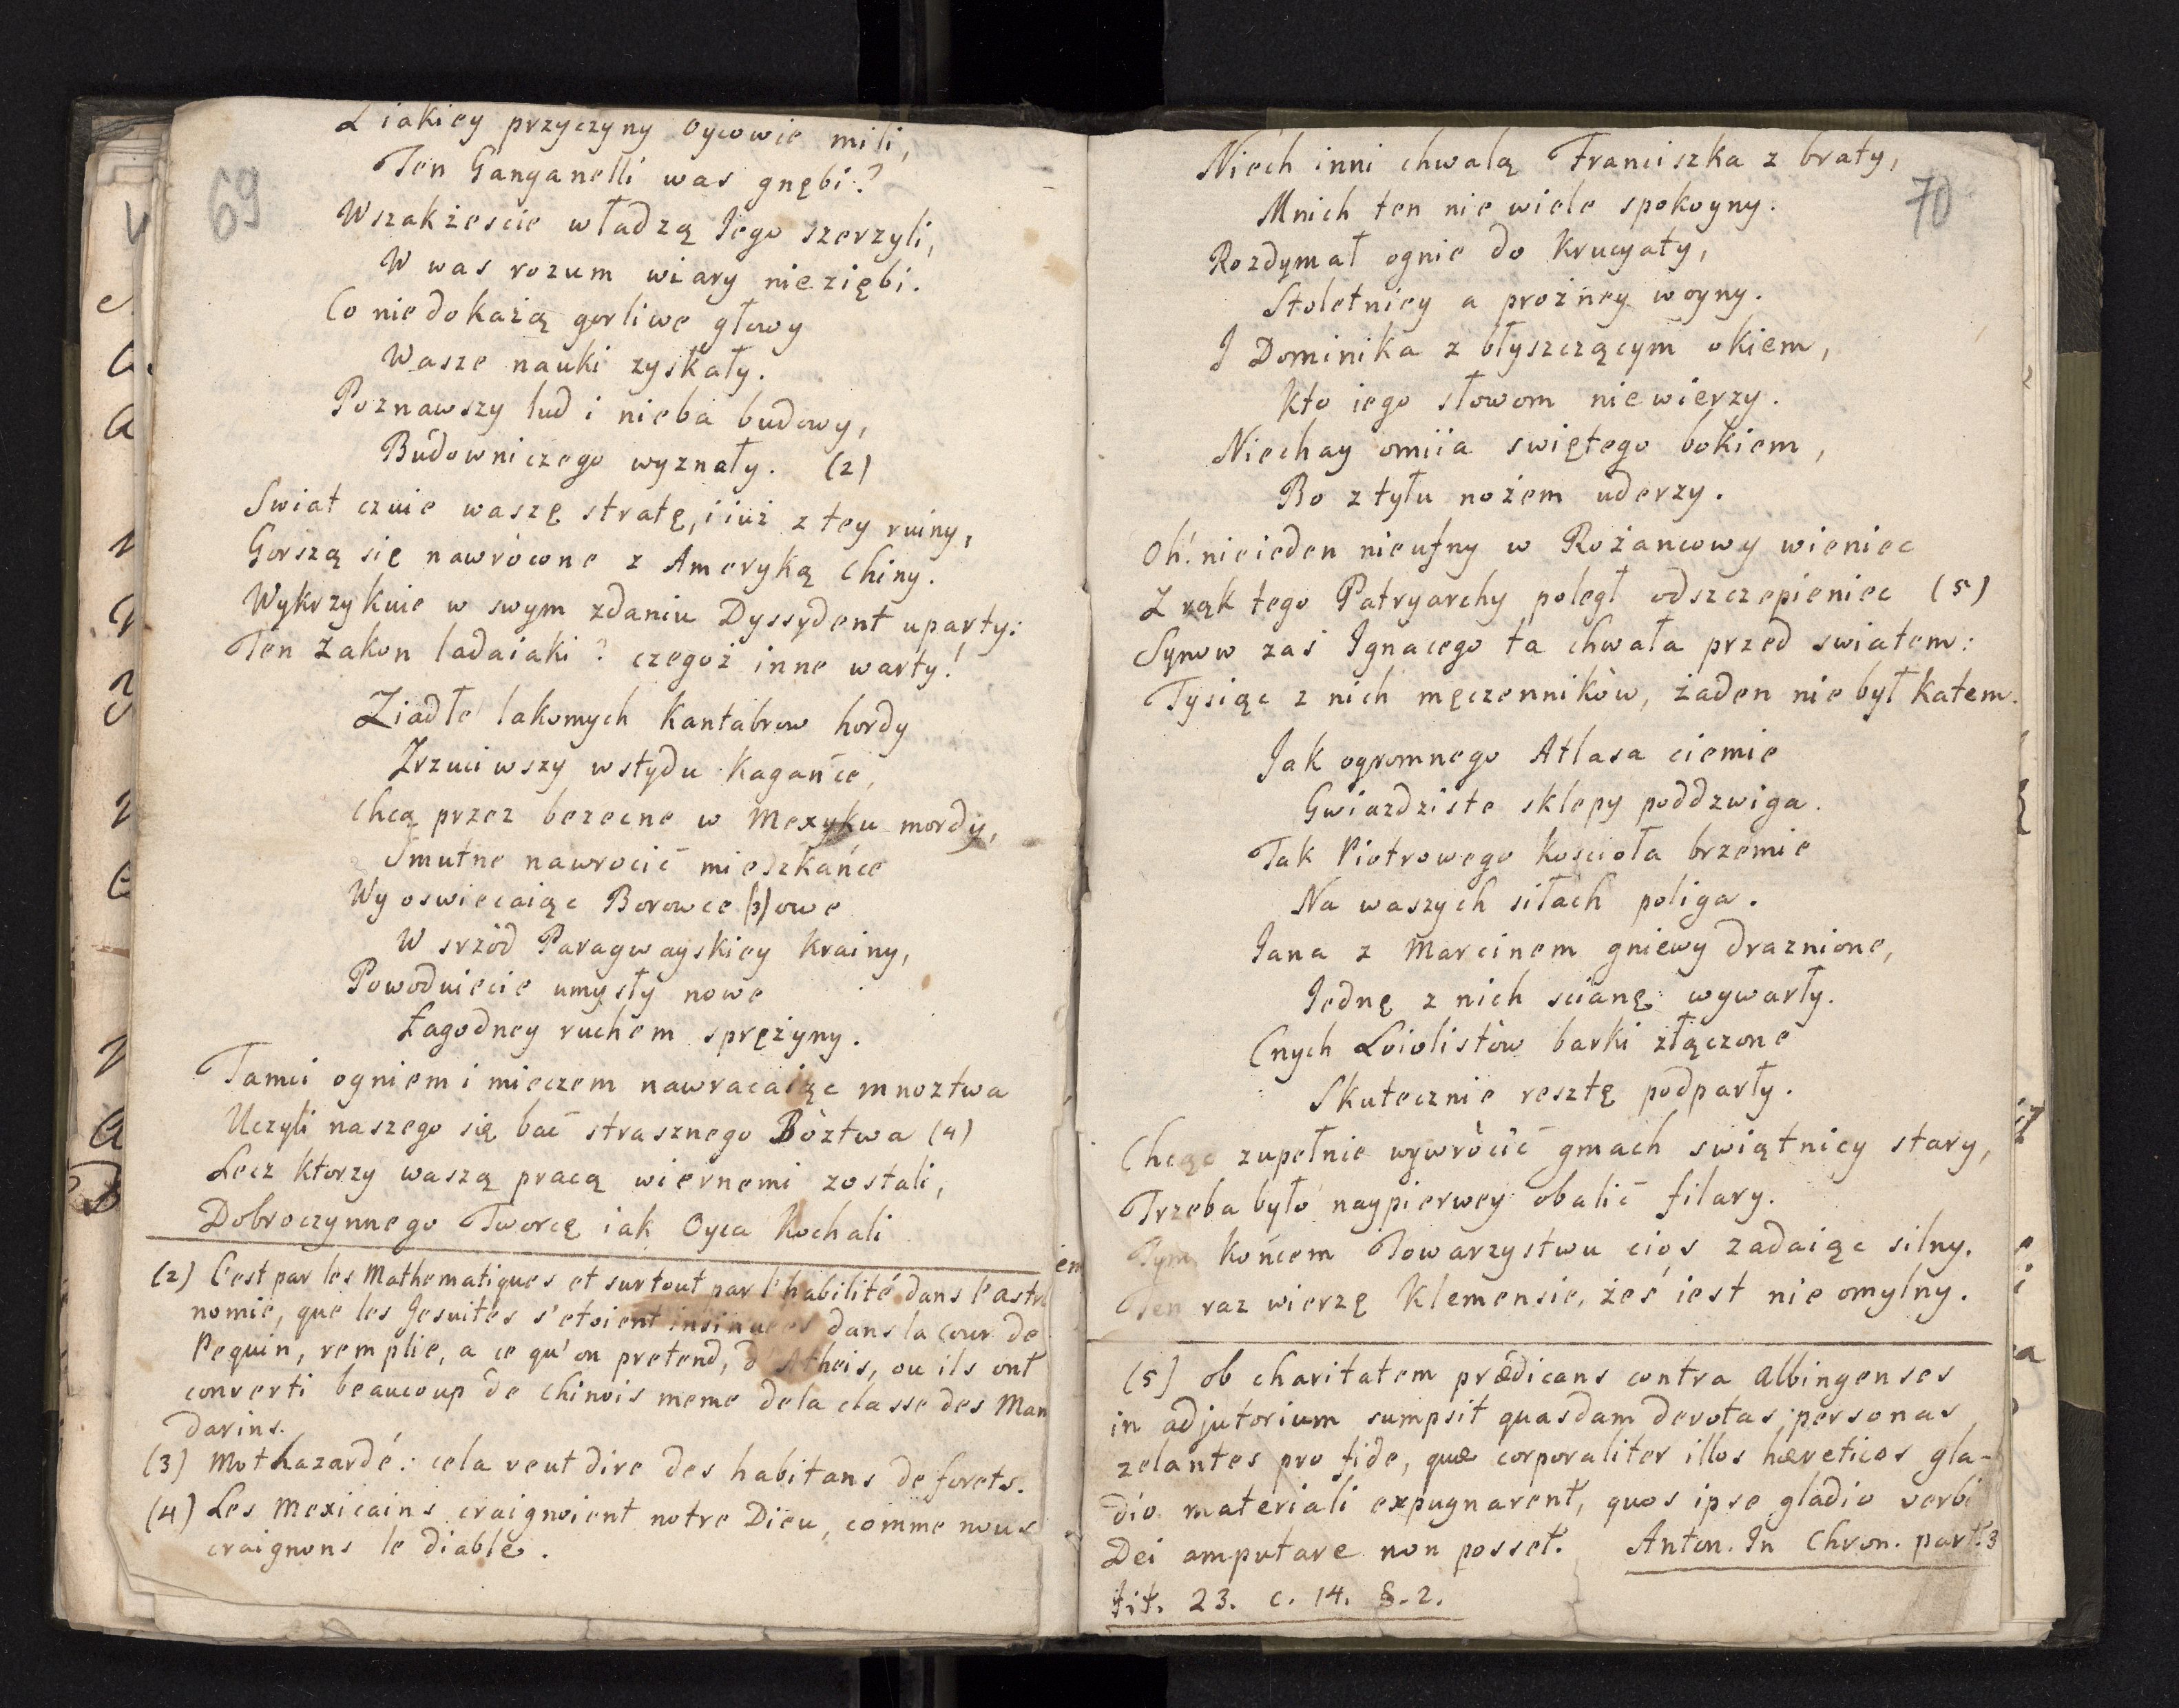 69
Z iakiey przyczyny oycowie mili,
Ten Ganganelli was gnębi?
Wszakżescie władzą Jego szerzyli,
W was rozum wiary nieziębi.
Co nie dokażą gorliwe głowy
Wasze nauki zyskały.
Poznawszy lud i nieba budowy,
Budowniczego wyznały. (2)
Swiat czuie waszę stratę, i iuż z tey ruiny,
Gorszą się nawròcone z Ameryką Chiny.
Wykrzykuie w swym zdaniu Dyssydent uparty:
Ten Zakon ladaiaki? czegoż inne warty!
Ziadłe lakomych Kantabrow hordy
Zrzuciwszy wstydu kagańce,
Chcą przez bezecne w Mexyku mordy,
Smutne nawrocić mieszkańce
Wy oswiecaiąc Borowce (3) owe
W srzód Paragwayskiey krainy,
Powoduiecie umysły nowe
Łagodney ruchem sprężyny.
Tamci ogniem i mieczem nawracaiąc mnoztwa
Uczyli naszego się bać strasznego Bòztwa (4)
Lecz ktorzy waszą pracą wiernemi zostali,
Dobroczynnego Tworcę iak Oyca kochali
(2) C'est par les Mathematiques et surtout par l'habilité dans l'astro
nomie, que les Jesuites s'etoient insinuees dans la cour de
Pequin, remplie, a ce qu'on pretend, d'Atheis, ou ils ont
converti beaucoup de Chinois meme de la classe des Man
darins.
(3) Mot hazardé: cela veut dire des habitans de forets.
(4) Les Mexicains craignoient notre Dieu, comme nous
craignons le diable.
70
Niech inni chwalą Franciszka z braty,
Mnich ten nie wiele spokoyny.
Rozdymał ognie do Krucyaty,
Stoletniey a prożney woyny.
I Dominika z błyszczącym okiem,
Kto iego słowom nie wierzy.
Niechay omiia swiętego bokiem,
Bo z tyłu nożem uderzy.
Oh! nieieden nieufny w Rożancowy wieniec
Z rąk tego Patryarchy poległ odszczepieniec (5)
Synow zaś Ignacego ta chwała przed swiatem:
Tysiąc z nich męczenników, żaden nie był katem.
Jak ogromnego Atlasa ciemie
Gwiazdziste sklepy poddzwiga.
Tak Piotrowego kościoła brzemie
Na waszych siłach poliga.
Jana z Marcinem gniewy draznione,
Jednę z nich scianę wywarły.
Cnych Loiolistów barki złączone
Skutecznie resztę podparły.
Chcąc zupełnie wywròcić gmach swiątnicy stary,
Trzeba było naypierwey obalić filary.
Tym końcem Towarzystwu cios zadaiąc silny.
Ten raz wierzę Klemensie, żeś iest nie omylny.
(5) ob charitatem prædicans contra Albingenses
in adjutorium sumpsit quasdam devotas personas
zelantes pro fide, quæ corporaliter illos hæreticos gla-
dio materiali expugnarent, quos ipse gladio verbi
Dei amputare non posset. Anton. In Chron. part. 3
tit. 23. c. 14. §. 2.